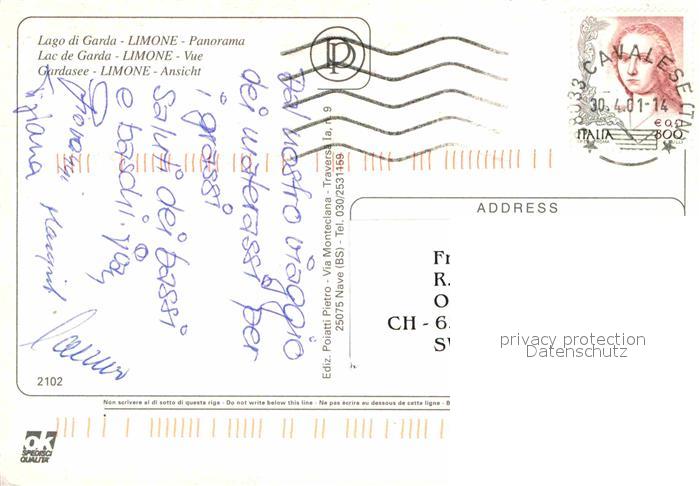 Lago di Garda - LIMONE - Panorama
Lac de Garda - LIMONE - Vue
Gardasee - LIMONE - Ansicht
Dal nostro viaggio
dei materassi per
i grassi
Saluti dei bassi
e baschi.
Giovanni
Tiziana
2102
Ediz. Poiatti Pietro - Via Monteclana - Traversa Ia, n. 9
25075 Nave (BS) - Tel. 030/2531159
P
CAVALESE
30.4.01-14
€ 0,41
ITALIA 800
ADDRESS
Fr
R.
O
CH - 6.
SV
privacy protection
Datenschutz
Non scrivere al di sotto di questa riga - Do not write below this line - Ne pas écrire au dessous de cette ligne - B
ok
SPEDISCI
QUALITÀ